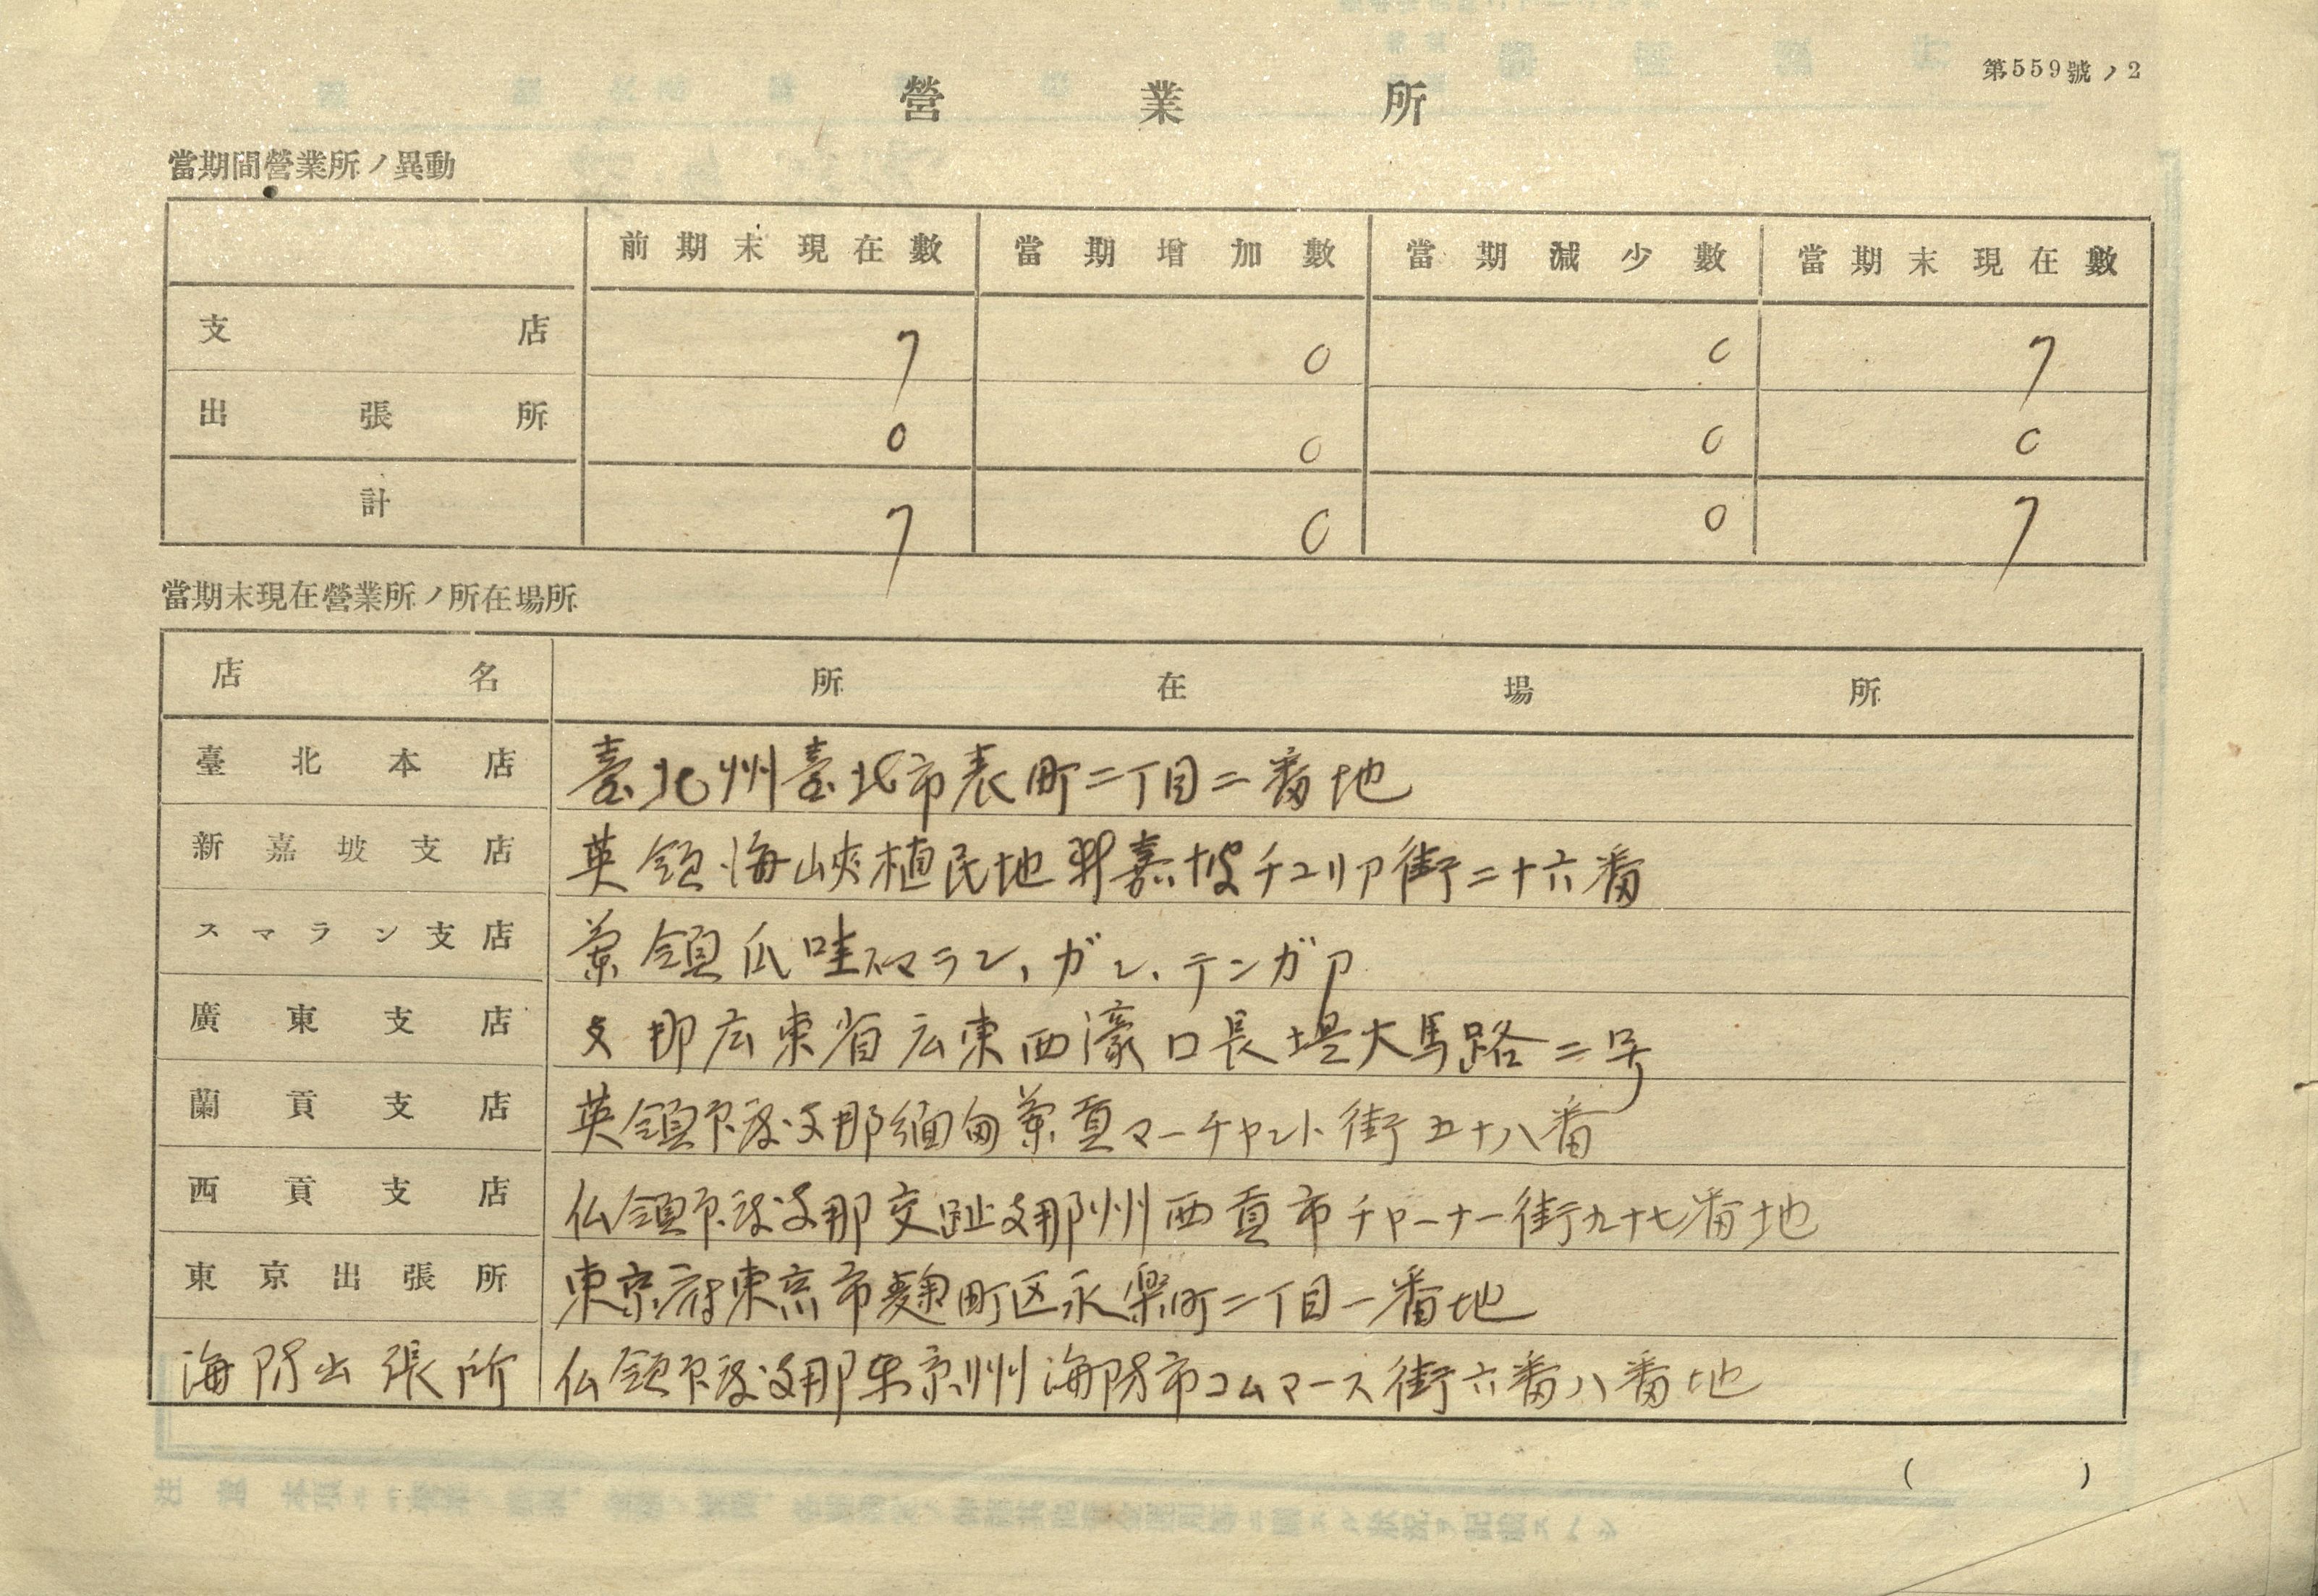 第559號ノ2
營業所
當期間營業所ノ異動
前期末現在數 當期增加數 當期減少數 當期末現在數
支店 7 0 0 7
出張所 0 0 0 0
計 7 0 0 7
當期末現在營業所ノ所在場所
店名 所在場所
臺北本店 臺北州臺北市表町二丁目二番地
新嘉坡支店 英領海峽植民地新嘉坡チユリア街二十六番
スマラン支店 蘭領爪哇スマラン、ガン、テンガア
廣東支店 支那広東省広東西濠口長堤大馬路二号
蘭貢支店 英領印度支那緬甸蘭貢マーチヤント街五十八番
西貢支店 仏領印度支那交趾支那州西貢市チヤーナー街九十七番地
東京出張所 東京府東京市麹町区永楽町二丁目一番地
海防出張所 仏領印度支那東京州海防市コムマース街六番八番地
( )